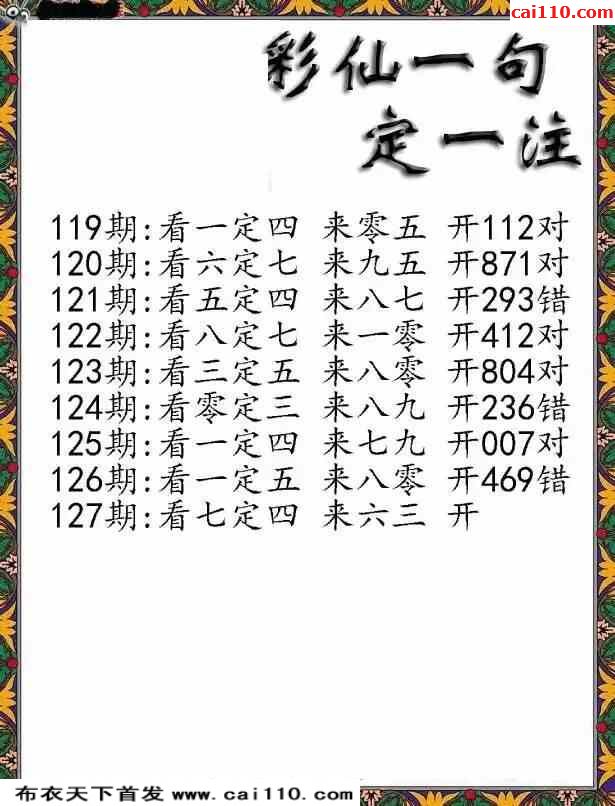 cai110.com
彩仙一句
定一注
119期:看一定四 来零五 开112对
120期:看六定七 来九五 开871对
121期:看五定四 来八七 开293错
122期:看八定七 来一零 开412对
123期:看三定五 来八零 开804对
124期:看零定三 来八九 开236错
125期:看一定四 来七九 开007对
126期:看一定五 来八零 开469错
127期:看七定四 来六三 开
布衣天下首发 www.cai110.com